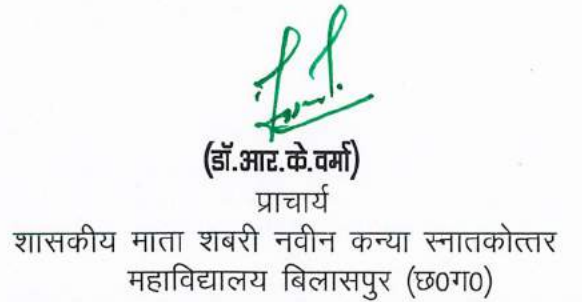 (डॉ.आर.के.वर्मा)
प्राचार्य
शासकीय माता शबरी नवीन कन्या स्नातकोत्तर
महाविद्यालय बिलासपुर (छ0ग0)